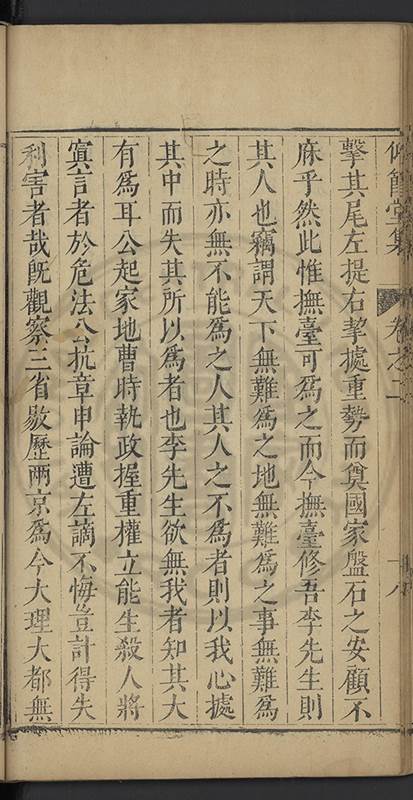 仰節堂集 卷之二 十八
擊其尾左提右挈據重勢而奠國家盤石之安顧不
庥乎然此惟撫臺可為之而今撫臺修吾李先生則
其人也竊謂天下無難為之地無難為之事無難為
之時亦無不能為之人其人之不為者則以我心據
其中而失其所以為者也李先生欲無我者知其大
有為耳公起家地曹時執政握重權立能生殺人將
寘言者於危法公抗章申論遭左謫不悔豈計得失
利害者哉旣觀察三省敭歷兩京為今大理大都無